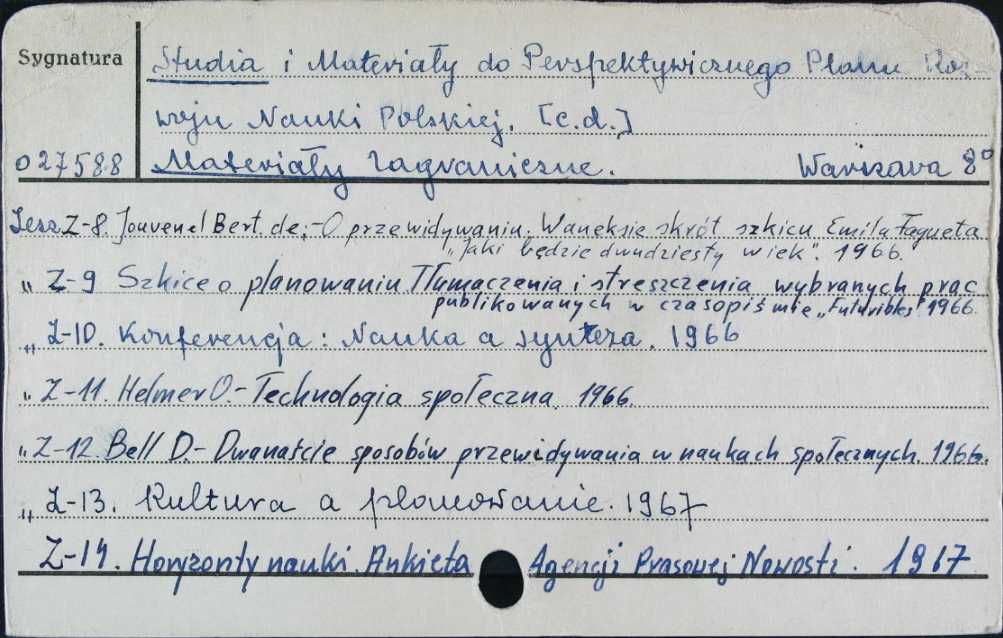 Sygnatura
Studia i Materiały do Perspektywicznego Planu Roz-
woju Nauki Polskiej. [c.d.]
027588 Materiały zagraniczne. Warszawa 8°
Zesz Z-8. Jouvenel Bert. de.-O przewidywaniu. W aneksie skrót szkicu Emila Fagueta
"Jaki będzie dwudziesty wiek". 1966.
" Z-9 Szkice o planowaniu Tłumaczenia i streszczenia wybranych prac
publikowanych w czasopiśmie "Futuribles" 1966.
" Z-10. Konferencja: Nauka a synteza. 1966
" Z-11. Helmer O.- Technologia społeczna. 1966.
" Z-12. Bell D.- Dwanaście sposobów przewidywania w naukach społecznych. 1966.
" Z-13. Kultura a planowanie. 1967
Z-14. Horyzonty nauki. Ankieta Agencji Prasowej Nowosti. 1967